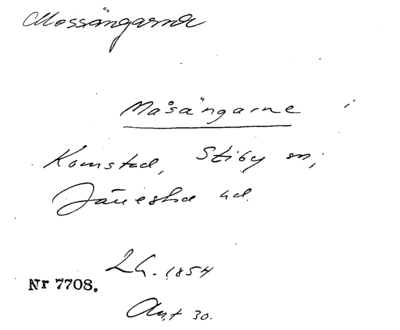 Mossängarne
Måsängarne
Komstad, Stiby sn,
Järrestad hd.
Lh. 1854
Nr 7708.
Akt 30.